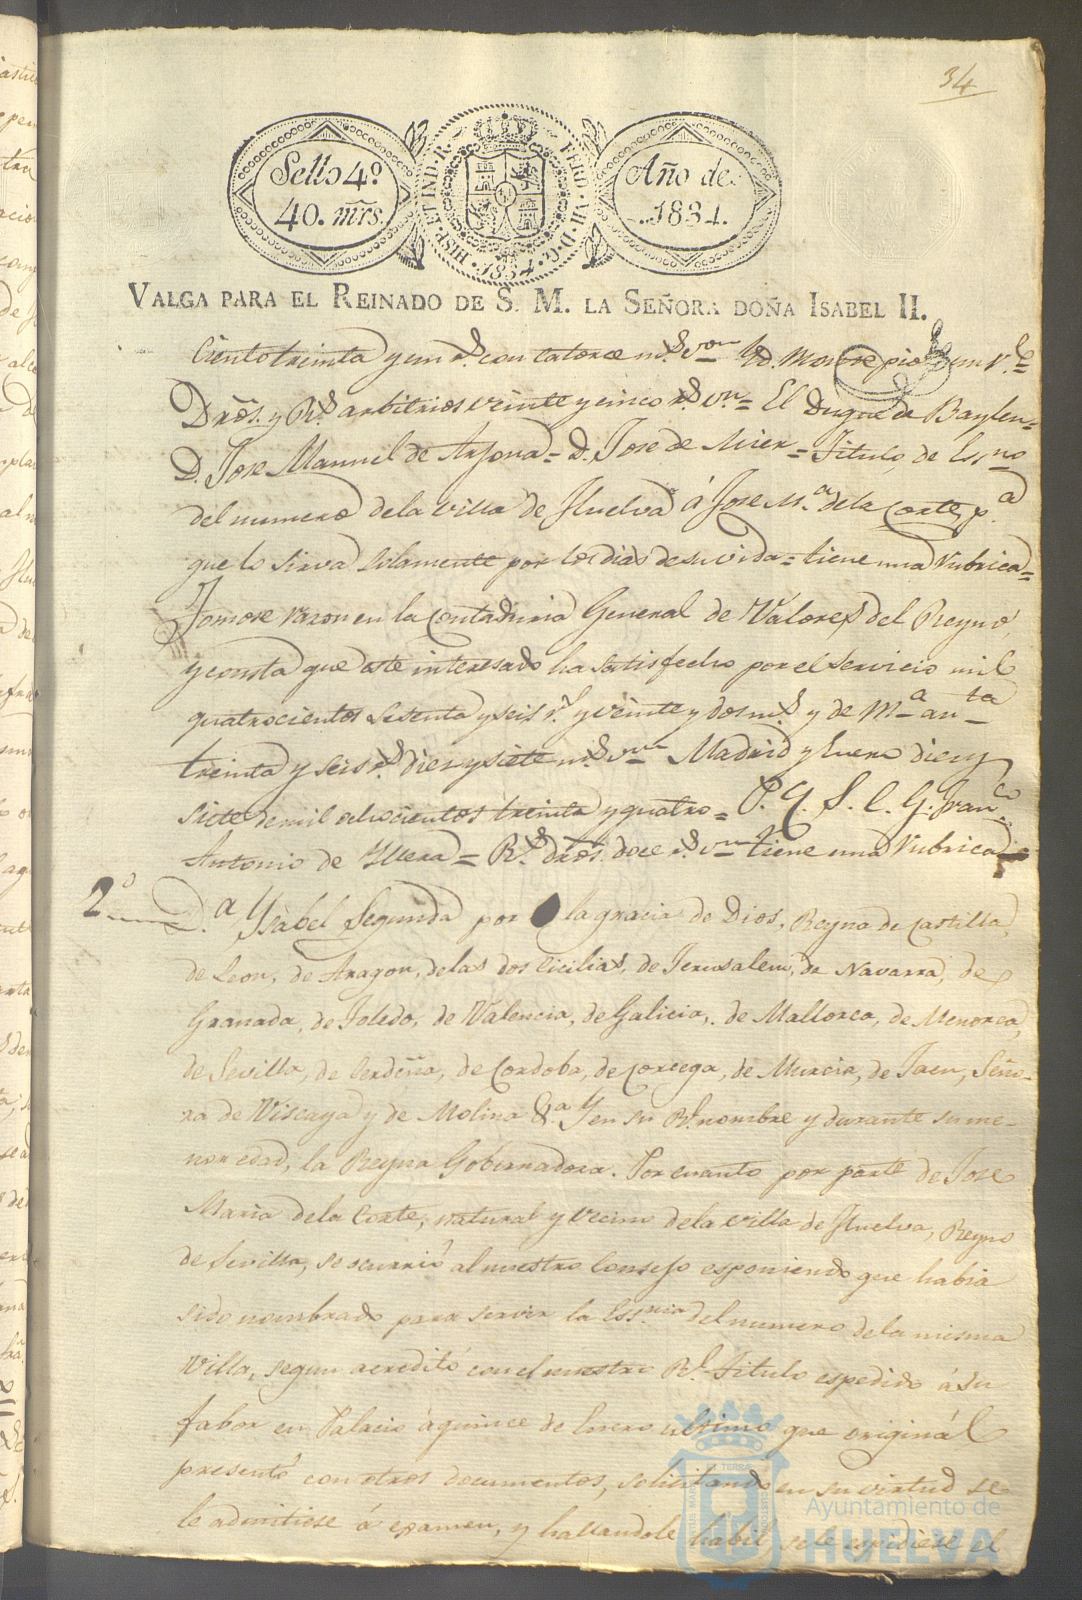 34
Sello 4º
40. mrs.
HISP. ET IND. R. FERD. VII. D. G. 1834.
Año de
1834.
VALGA PARA EL REINADO DE S. M. LA SEÑORA DOÑA ISABEL II.
Ciento treinta y un rs. con catorce ms. von
Dros. y Rs. arbitrios veinte y cinco rs. von = El Duque de Baylen =
D. Jose Manuel de Arjona = D. Jose de Mier = Titulo de Essno
del numero de la villa de Huelva á Jose Ma. de la Corte pa.
que lo sirva solamente por los dias de su vida = tiene una Rubrica =
Tomose razon en la Contaduria General de Valores del Reyno,
y consta que este interesado ha satisfecho por el servicio mil
quatrocientos sesenta y seis rs. y veinte y dos ms. y de Ma anta
treinta y seis rs. diez y siete ms. von Madrid y Enero diez y
siete de mil ochocientos treinta y quatro = P. Y. S. C. G. Franco
Antonio de Yllera = Rs. dros. doce rs. von tiene una Rubrica
2º Da. Ysabel Segunda por la gracia de Dios, Reyna de Castilla,
de Leon, de Aragon, de las dos Cicilias, de Jerusalem, de Navarra, de
Granada, de Toledo, de Valencia, de Galicia, de Mallorca, de Menorca,
de Sevilla, de Cerdeña, de Cordoba, de Corcega, de Murcia, de Jaen, Seño-
ra de Viscaya y de Molina &a. Y en su Rl. nombre y durante su me-
nor edad, la Reyna Gobernadora. Por cuanto por parte de Jose
Maria de la Corte, natural y vecino de la villa de Huelva, Reyno
de Sevilla, se ocurrió al nuestro Consejo esponiendo que habia
sido nombrado para servir la Essnia del numero de la misma
Villa, segun acreditó con el nuestro Rl. Titulo espedido á su
fabor en Palacio á quince de Enero ultimo que originál
presentó con otros documentos, solicitando en su virtud se
le admitiese á examen, y hallandole habil se le espidiese el
Ayuntamiento de
HUELVA